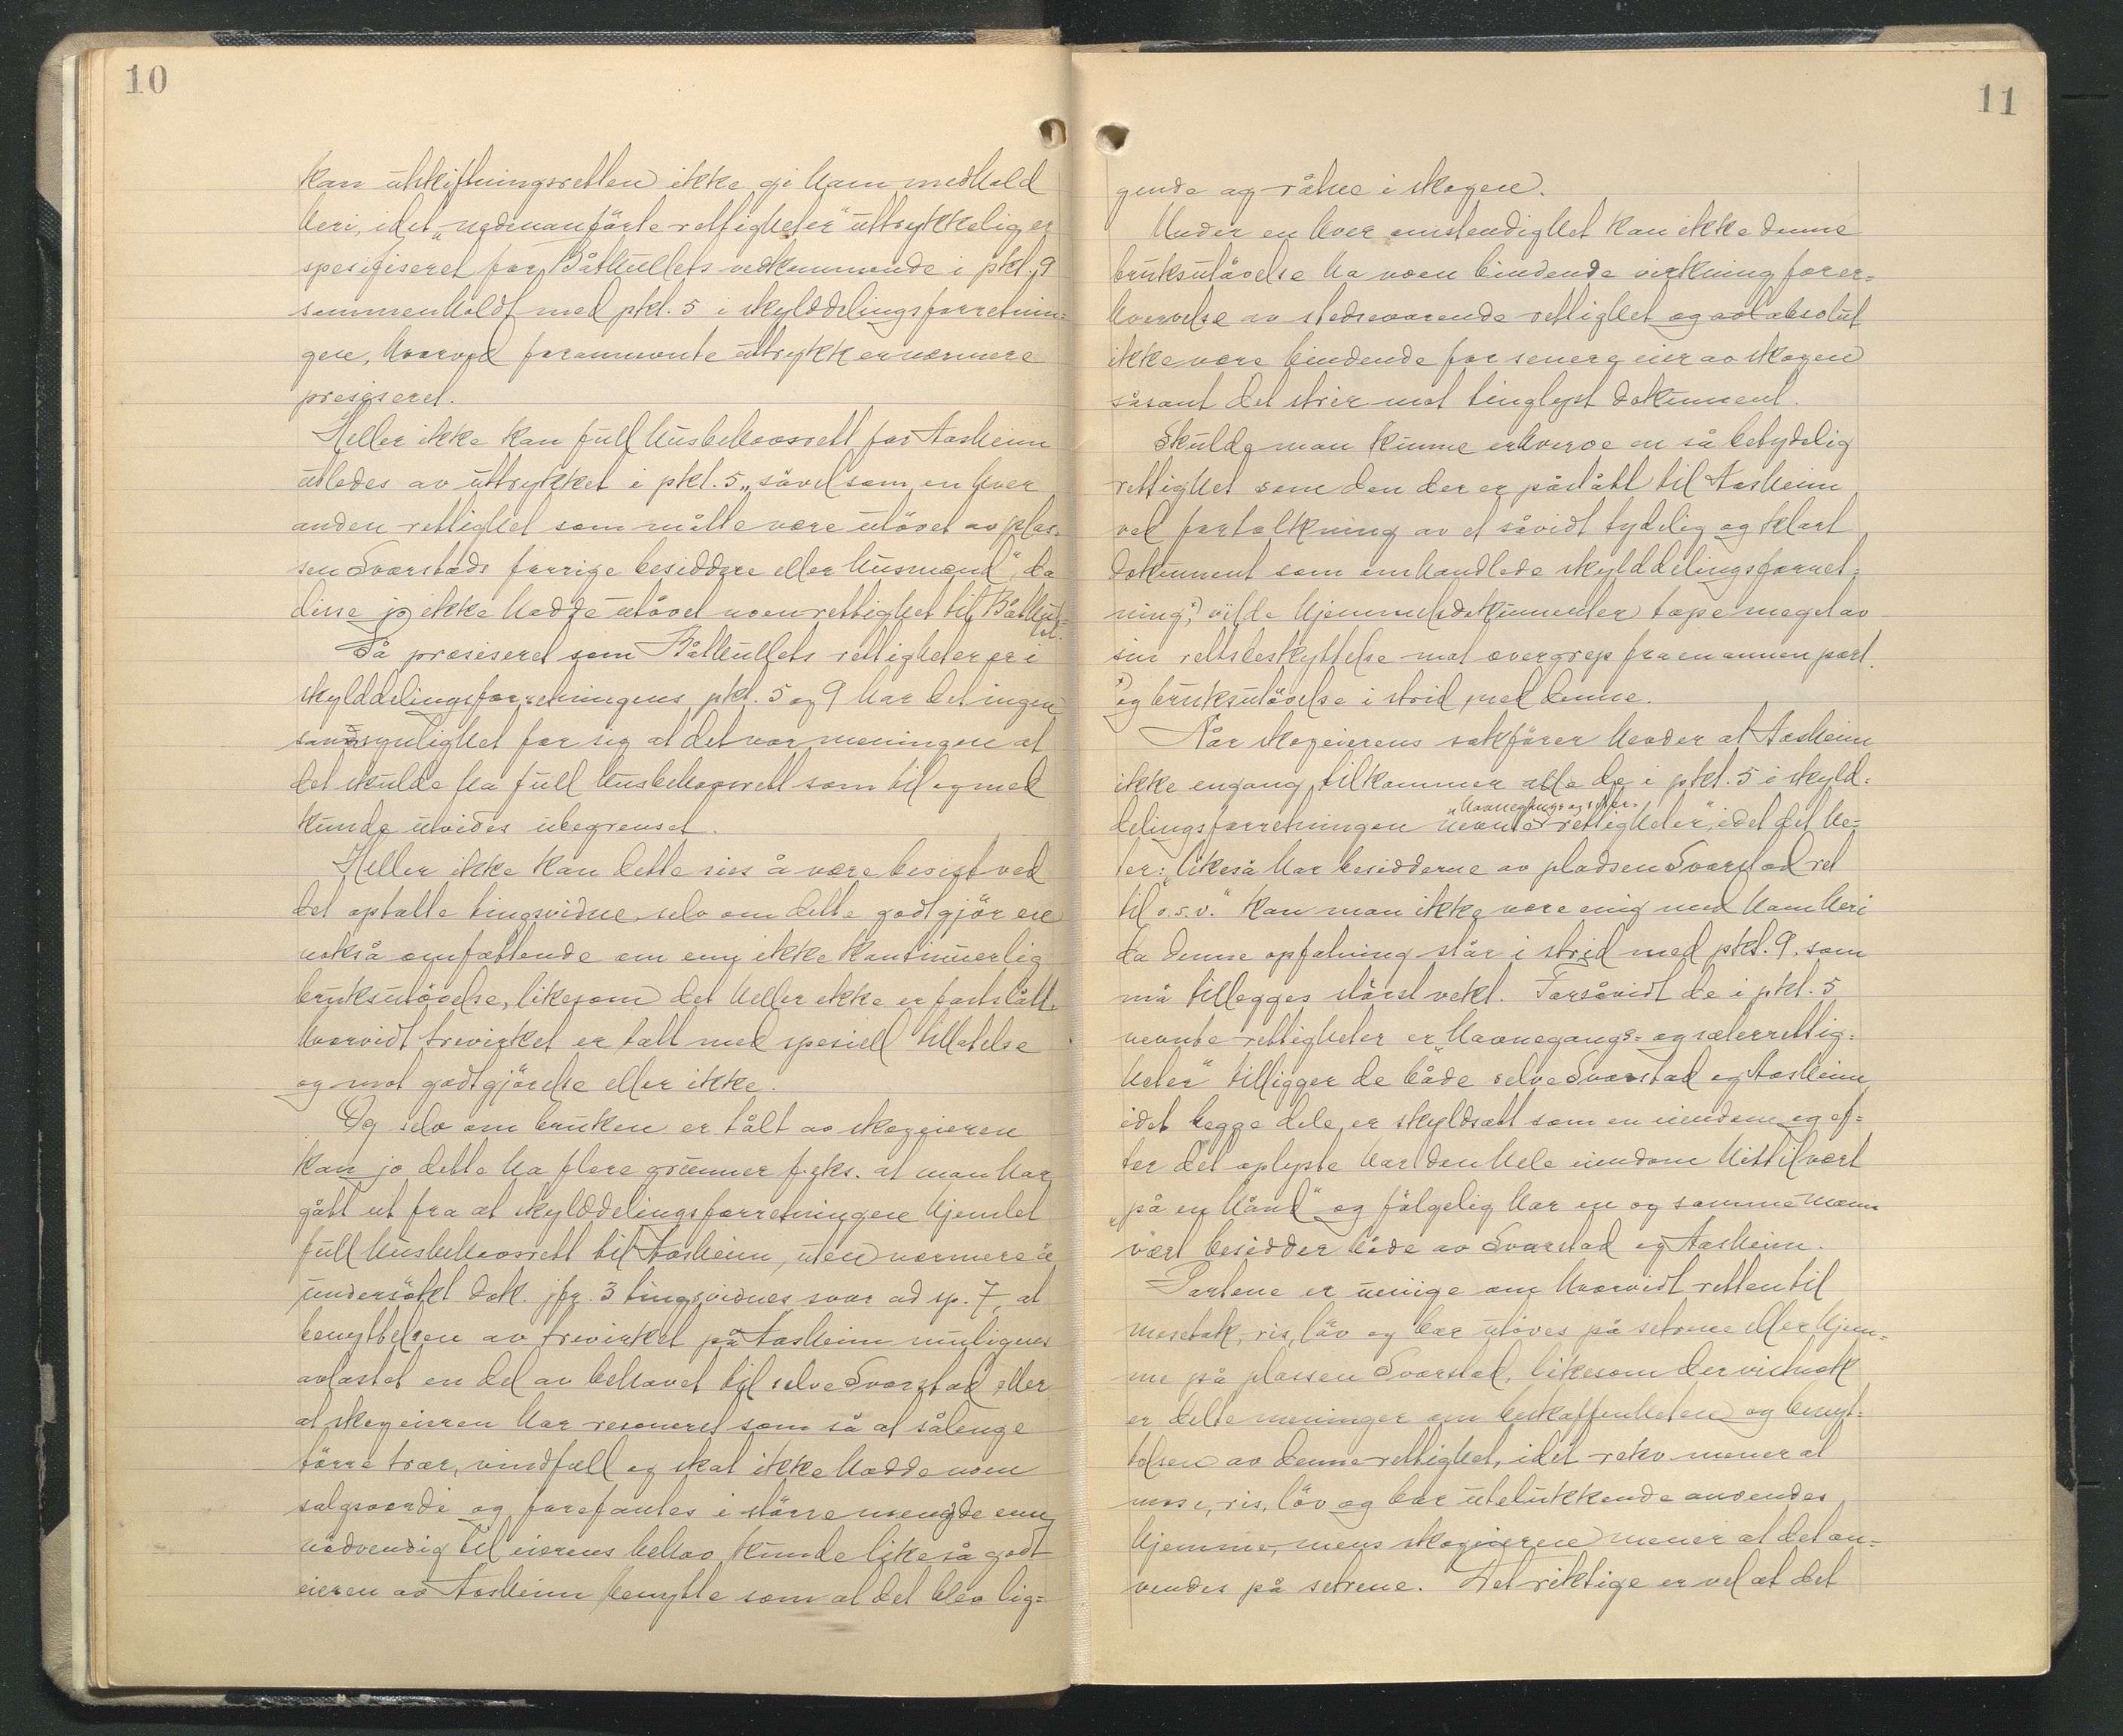 10
kan utskiftningsretten ikke gi ham medhold
heri, idet „nedenanførte rettigheter" uttrykkelig er
spesifiseret for Båthullets vedkommende i pkt. 9
sammenholdt med pkt. 5 i skylddelingsforretnin-
gen, hvorved forannevnte uttrykk er nærmere
presiseret.
Heller ikke kan full husbehovsrett for Aasheim
utledes av uttrykket i pkt. 5 „såvelsom en hver
anden rettighet som måtte være utövet av plas-
sen Svarstads forrige besiddere eller husmænd", da
disse jo ikke hadde utövet noen rettighet til Båthul-
let.
Så præsiseret som Båthullets rettigheter er i
skylddelingsforretningens pkt. 5 og 9 har det ingen
sandsynlighet for sig at det var meningen at
det skulde ha full husbehovsrett som til og med
kunde utvides ubegrenset.
Heller ikke kan dette sies å være bevist ved
det optatte tingsvidne, selv om dette godtgjör en
nokså omfattende om enn ikke kontinuerlig
bruksutövelse, likesom det heller ikke er fastslått
hvorvidt trevirket er tatt med spesiell tillatelse
og mot godtgjörelse eller ikke.
Og selv om bruken er tålt av skogeieren
kan jo dette ha flere grunner f. eks. at man har
gått ut fra at skylddelingsforretningen hjemlet
full husbehovsrett til Aasheim, uten nærmere å
undersökt dok. jfr. 3 tingsvidnes svar ad sp. 7, at
benyttelsen av trevirket på Aasheim muligens
avlastet en del av behovet til selve Svarstad eller
at skogeieren har resoneret som så at sålenge
törre trær, vindfall og skat ikke hadde noen
salgsverdi og forefantes i större mengde enn
nödvendig til eierens behov kunde likeså godt
eieren av Aasheim benytte som at det blev lig-
11
gende og råtne i skogen.
Under en hver omstendighet kan ikke denne
bruksutövelse ha noen bindende virkning for er-
hvervelse av stedsevarende rettighet og vil absolut
ikke være bindende for senere eier av skogen
såsant det strir mot tinglyst dokument.
Skulde man kunne erhverve en så betydelig
rettighet som den der er påstått til Aasheim
ved fortolkning av et såvidt tydelig og klart
dokument som omhandlede skylddelingsforret-
ning, x) vilde hjemmelsdokumenter tape meget av
sin rettsbeskyttelse mot overgrep fra en annen part.
x) og bruksutövelse i strid med denne.
Når skogeierens sakförer hevder at Aasheim
ikke engang tilkommer alle de i pkt. 5 i skyld-
delingsforretningen nevnte „havnegangs og seter-
rettigheter", idet det he-
ter: „likeså har besidderne av pladsen Svarstad ret
til o.s.v." kan man ikke være enig med ham heri
da denne opfatning står i strid med pkt. 9, som
må tillegges störst vekt. Forsåvidt de i pkt. 5
nevnte rettigheter er „havnegangs- og sæterrettig-
heter" tilligger de både selve Svarstad og Aasheim,
idet begge dele er skyldsatt som en eiendom og ef-
ter det oplyste har den hele eiendom hittil vært
„på en hånd" og fölgelig har en og samme mann
vært besidder både av Svarstad og Aasheim.
Partene er uenige om hvorvidt retten til
mosetak, ris, löv og bar utöves på setrene eller hjem-
me på plassen Svarstad, likesom der vistnok
er delte meninger om beskaffenheten og benyt-
telsen av denne rettighet, idet rekv. mener at
mose, ris, löv og bar utelukkende anvendes
hjemme, mens skogeieren mener at det an-
vendes på setrene. Det riktige er vel at det